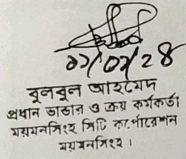 ০১/০১/২৪
বুলবুল আহমেদ
প্রধান ভান্ডার ও ক্রয় কর্মকর্তা
ময়মনসিংহ সিটি কর্পোরেশন
ময়মনসিংহ।